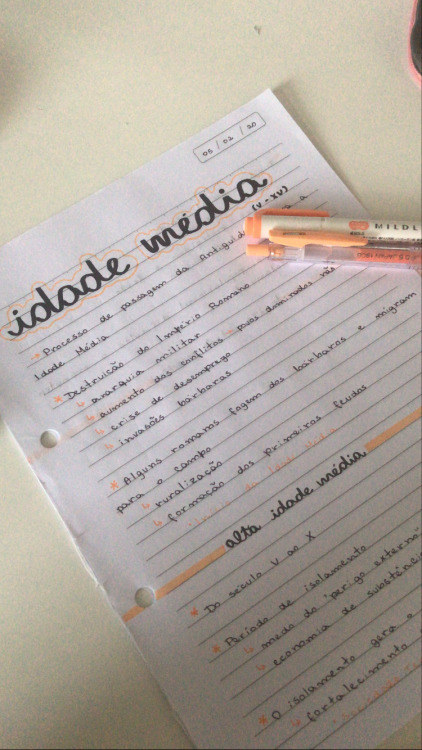 05 / 02 / 20
idade média
(V - XV)
→ Processo de passagem da Antiguid a
Idade Média
* Destruição do Império Romano
↳ anarquia militar
↳ aumento dos conflitos - povos dominados não
↳ crise de desemprego
↳ invasões bárbaras
* Alguns romanos fogem dos bárbaros e migram
para o campo
↳ ruralização
↳ formação dos primeiros feudos
alta idade média
* Do século V ao X
* Período de isolamento
↳ medo do "perigo externo"
↳ economia de subsistênci
* O isolamento gera o
↳ fortalecimento
MILDL